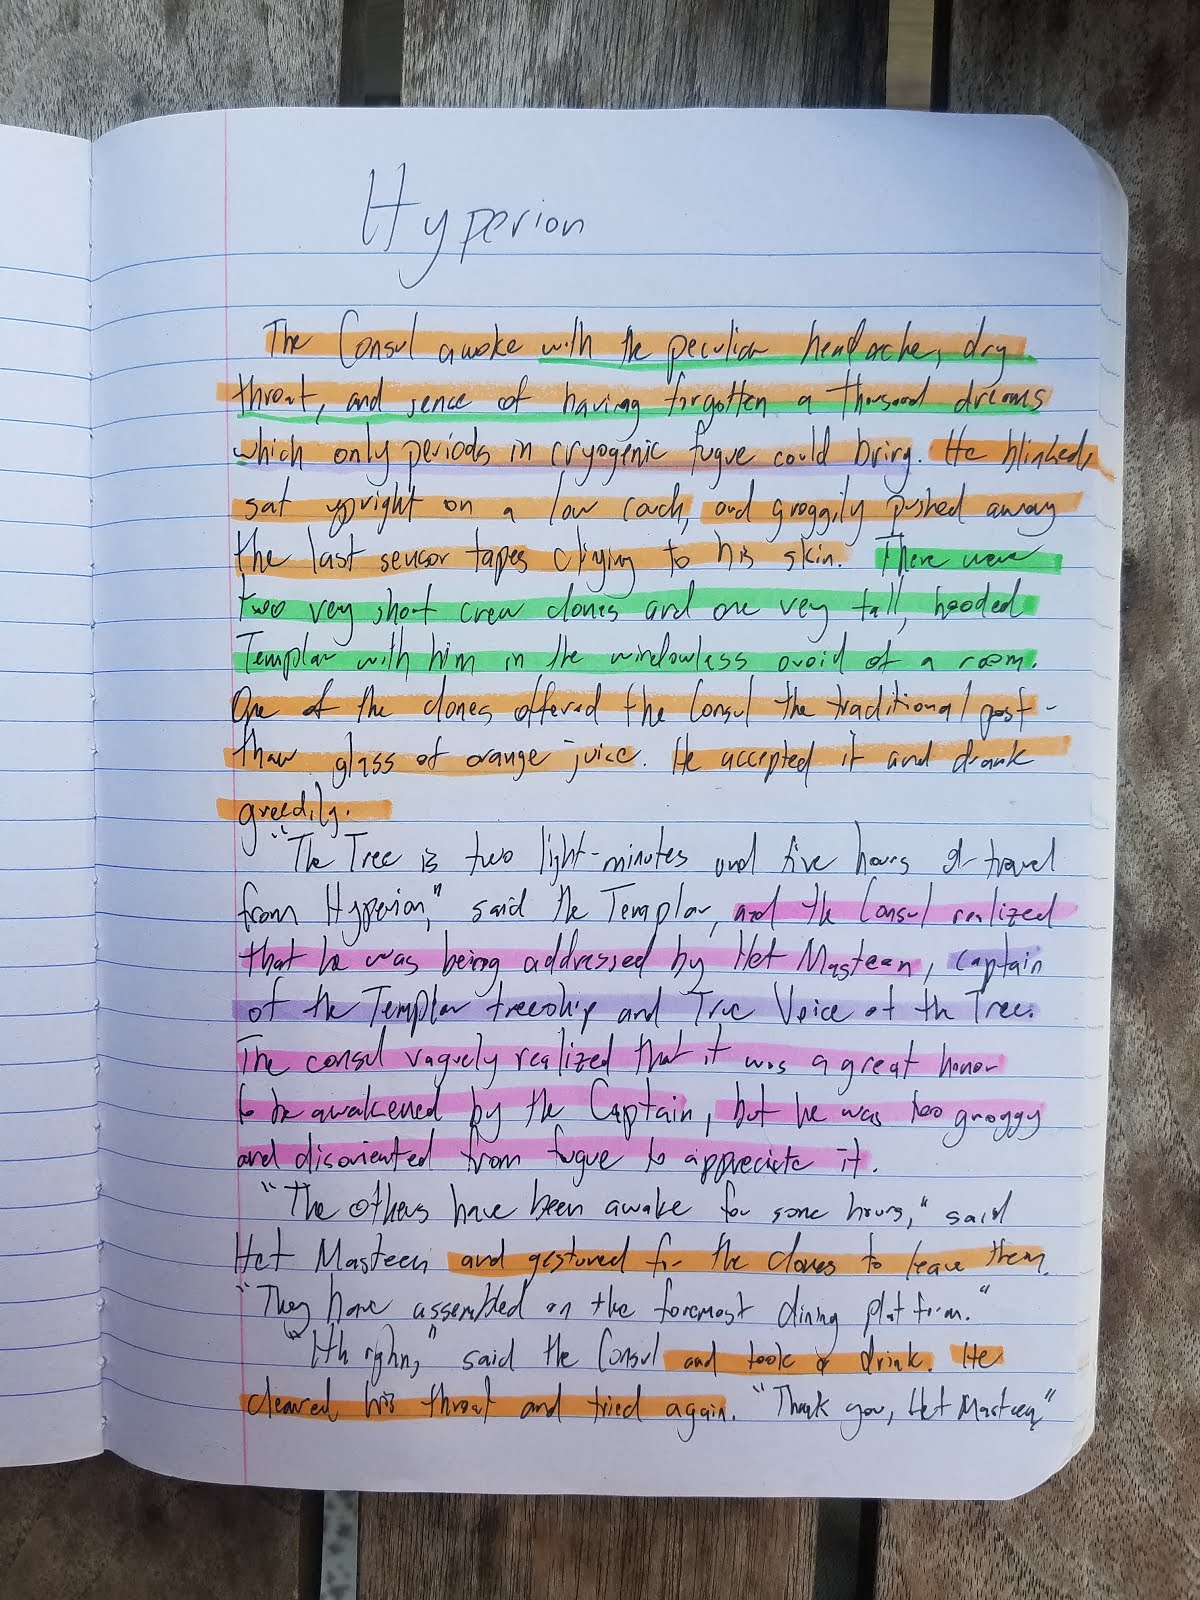 Hyperion
The Consul awoke with the peculiar headache, dry
throat, and sence of having forgotten a thousand dreams
which only periods in cryogenic fugue could bring. He blinked,
sat upright on a low couch, and groggily pushed away
the last sensor tapes clinging to his skin. There were
two very short crew clones and one very tall, hooded
Templar with him in the windowless ovoid of a room.
One of the clones offered the Consul the traditional post-
thaw glass of orange juice. He accepted it and drank
greedily.
"The Tree is two light-minutes and five hours of travel
from Hyperion," said the Templar, and the Consul realized
that he was being addressed by Het Masteen, captain
of the Templar treeship and True Voice of the Tree.
The consul vaguely realized that it was a great honor
to be awakened by the Captain, but he was too groggy
and disoriented from fugue to appreciate it.
"The others have been awake for some hours," said
Het Masteen and gestured for the clones to leave them.
"They have assembled on the foremost dining platform."
"Hh rghn," said the Consul and took a drink. He
cleared his throat and tried again. "Thank you, Het Masteen"